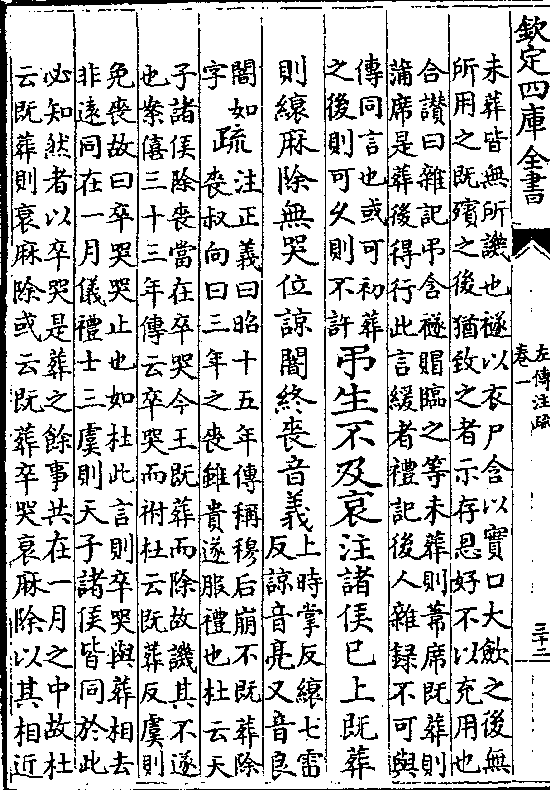 欽定四庫全書
左傳注疏
卷一
三十二
未葬皆無所譏也襚以衣尸含以實口大斂之後無
所用之既殯之後猶致之者示存恩好不以充用也
合讚曰雜記弔含襚賵臨之等未葬則葦席既葬則
蒲席是葬後得行此言緩者禮記後人雜録不可與
傳同言也或可初葬
之後則可久則不許
弔生不及哀注諸侯已上既葬
則縗麻除無哭位諒闇終喪音義
上時掌反縗七雷
反諒音亮又音良
闇如
字
疏
注正義曰昭十五年傳稱穆后崩不既葬除
喪叔向曰三年之喪雖貴遂服禮也杜云天
子諸侯除喪當在卒哭今王既葬而除故譏其不遂
也案僖三十三年傳云卒哭而祔杜云既葬反虞則
免喪故曰卒哭哭止也如杜此言則卒哭與葬相去
非遠同在一月儀禮士三虞則天子諸侯皆同於此
必知然者以卒哭是葬之餘事共在一月之中故杜
云既葬則衰麻除或云既葬卒哭衰麻除以其相近